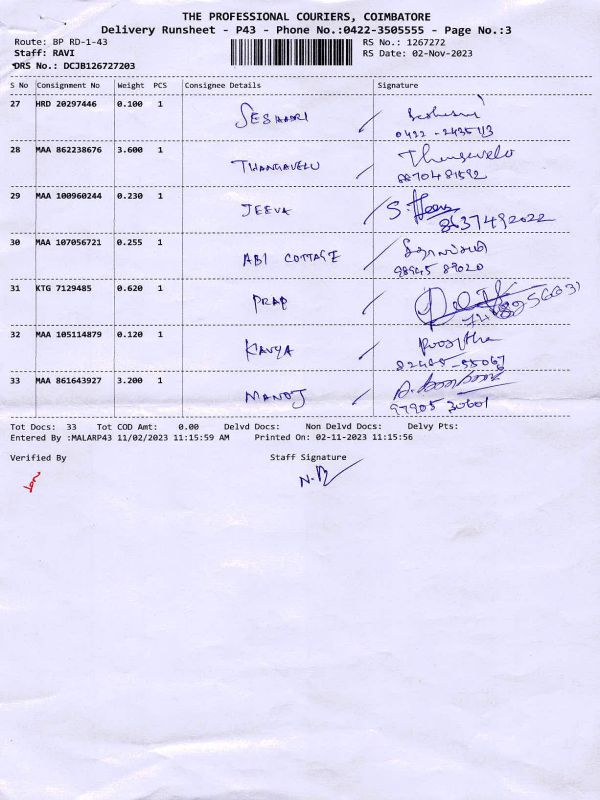 THE PROFESSIONAL COURIERS, COIMBATORE
Delivery Runsheet - P43 - Phone No.:0422-3505555 - Page No.:3
Route: BP RD-1-43 RS No.: 1267272
Staff: RAVI RS Date: 02-Nov-2023
DRS No.: DCJB126727203
S No Consignment No Weight PCS Consignee Details Signature
27 HRD 20297446 0.100 1 SESHADRI
28 MAA 862238676 3.600 1 THANGAVELU Thangavelu
8870481592
29 MAA 100960244 0.230 1 JEEVA S. Jeeva
8637492022
30 MAA 107056721 0.255 1 ABI COTTAGE
98945 89020
31 KTG 7129485 0.620 1 PRAP
32 MAA 105114879 0.120 1 KAVYA
33 MAA 861643927 3.200 1 MANOJ
97905 30601
Tot Docs: 33 Tot COD Amt: 0.00 Delvd Docs: Non Delvd Docs: Delvy Pts:
Entered By :MALARP43 11/02/2023 11:15:59 AM Printed On: 02-11-2023 11:15:56
Verified By Staff Signature